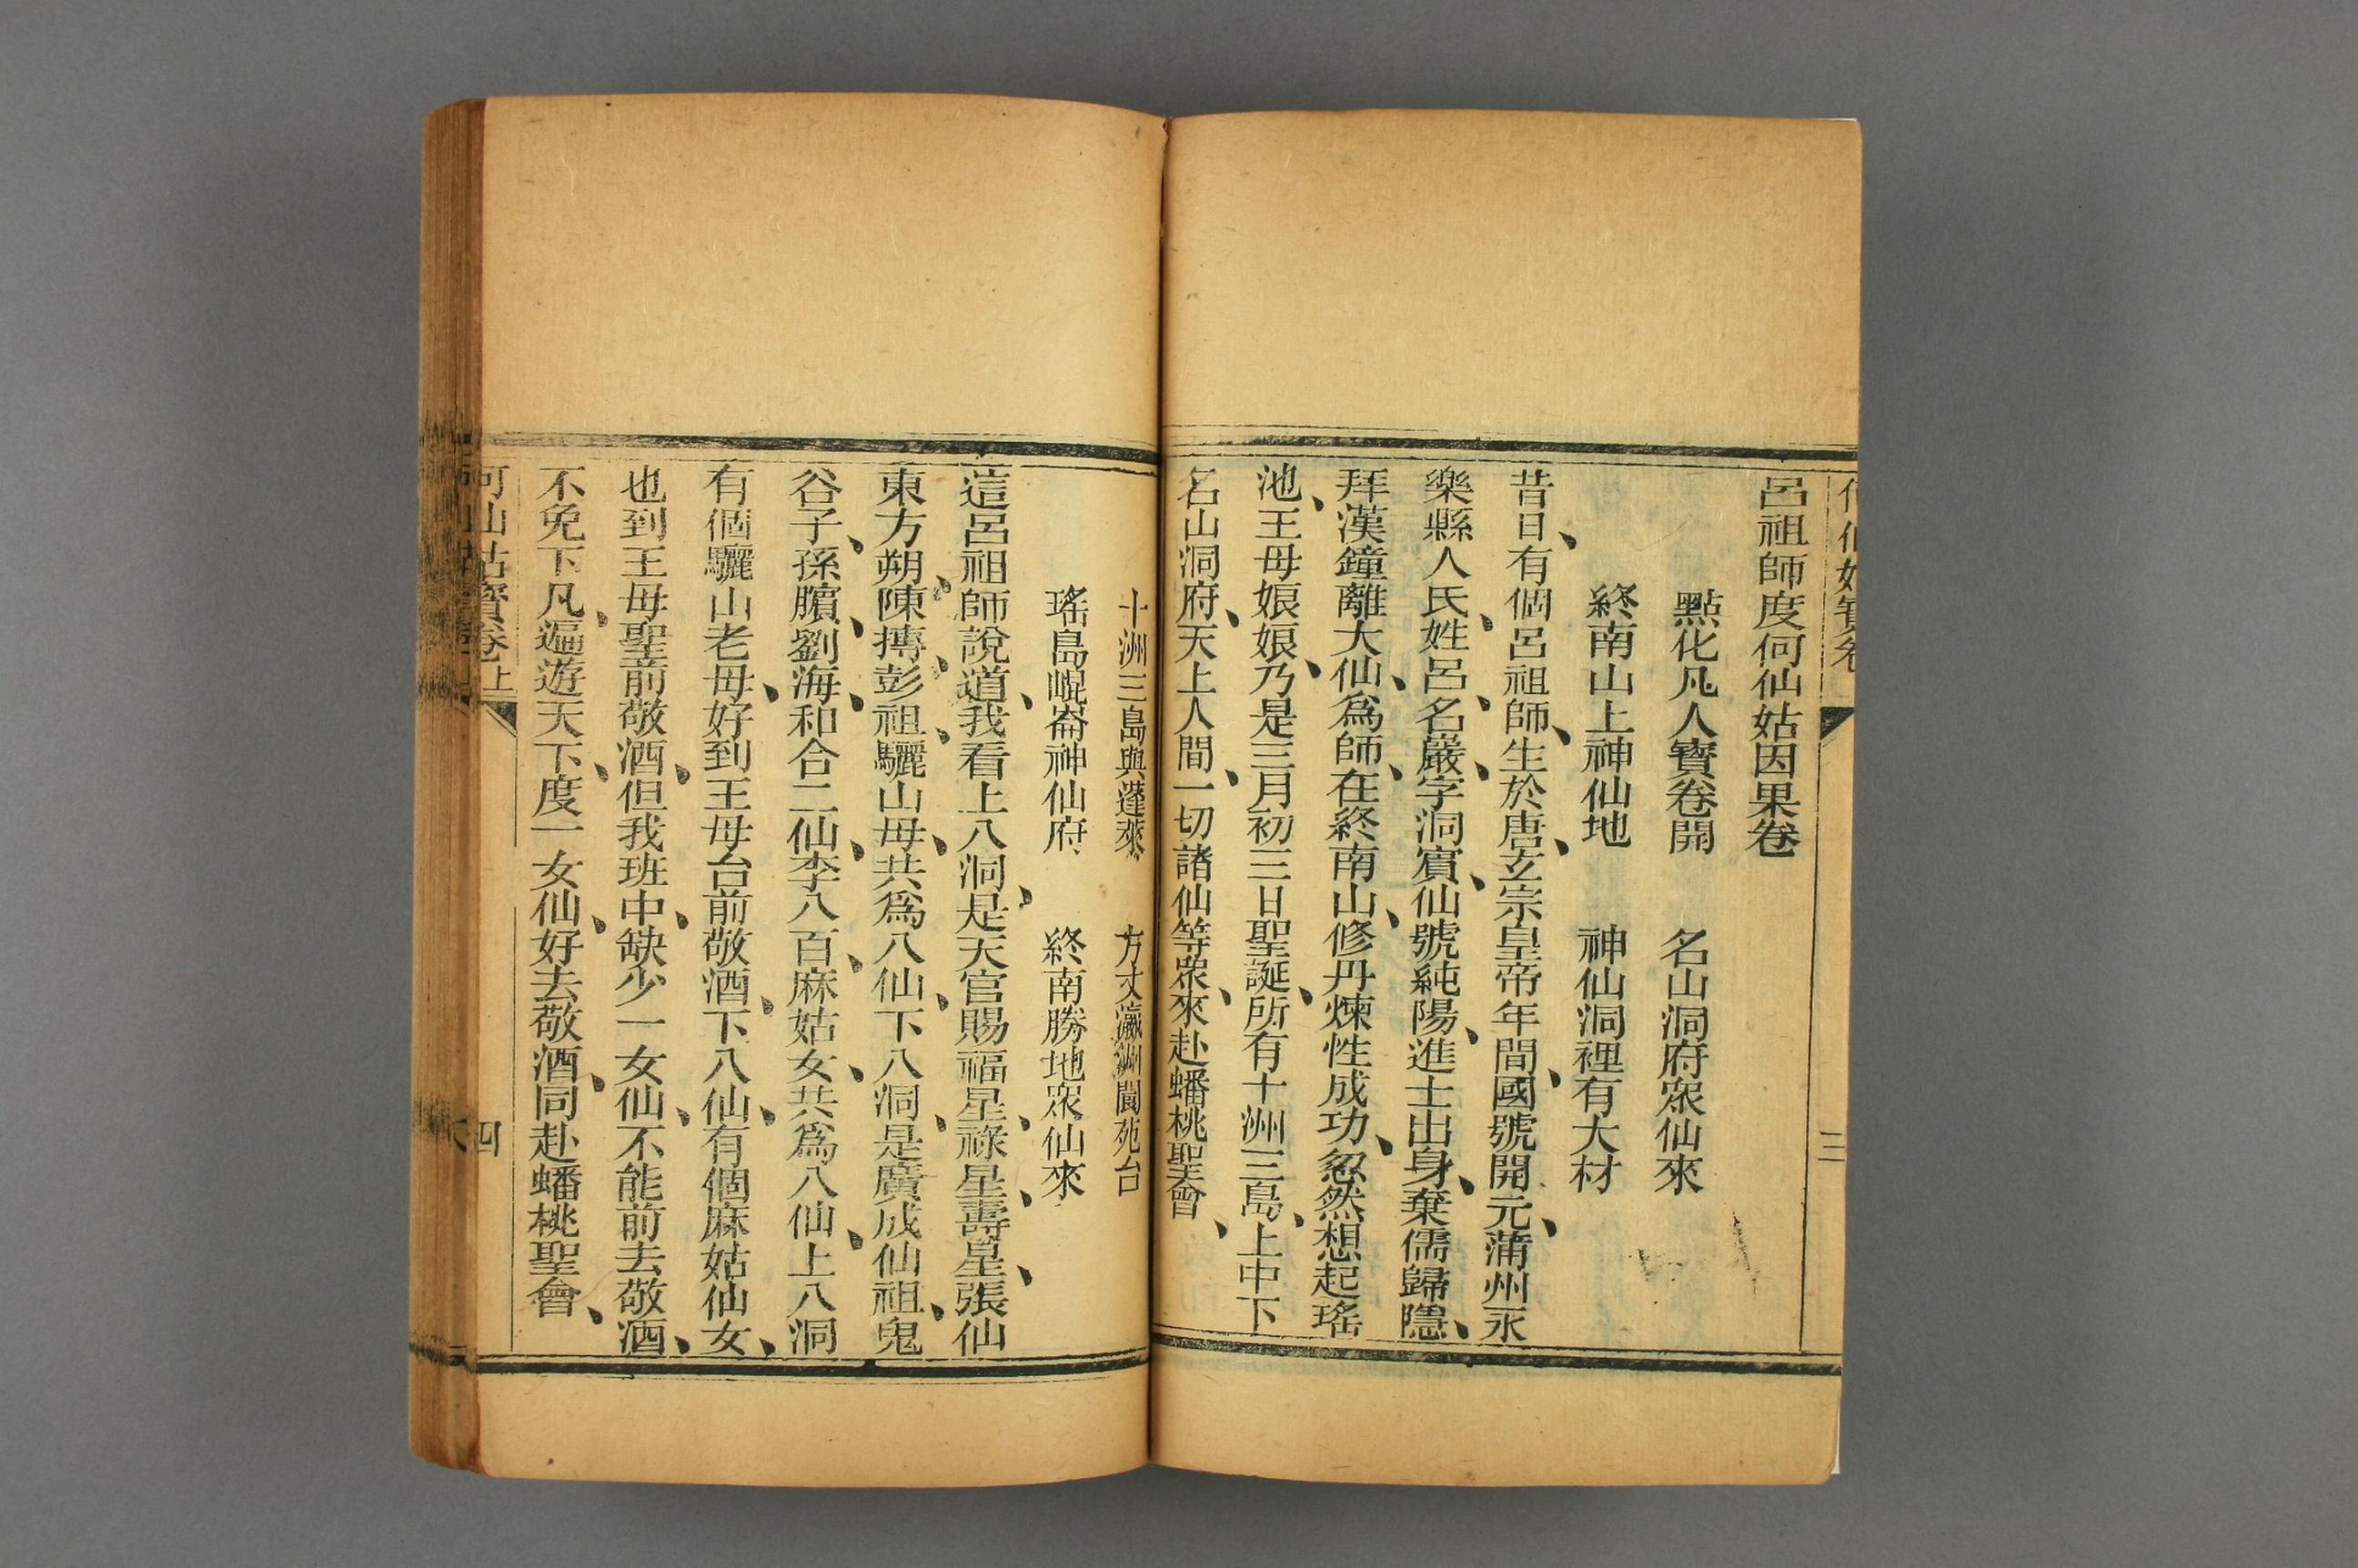 何仙姑寶卷
三
呂祖師度何仙姑因果卷
點化凡人寶卷開　名山洞府眾仙來
終南山上神仙地　神仙洞裡有大材
昔日、有個呂祖師、生於唐、玄宗皇帝年間、國號開元、蒲州永
樂縣人氏、姓呂、名巖、字洞賓、仙號純陽、進士出身、棄儒歸隱、
拜漢鐘離大仙、爲師、在終南山、修丹煉性成功、忽然想起瑤
池、王母娘娘、乃是三月初三日聖誕、所有十洲三島、上中下
名山洞府、天上人間、一切諸仙等眾、來赴蟠桃聖會、
十洲三島與蓬萊　方丈瀛洲閬苑台
瑤島崐崙神仙府　終南勝地眾仙來
這呂祖師說道、我看上八洞、是天官賜福星、祿星、壽星、張仙
東方朔、陳摶、彭祖、驪山母、共爲八仙、下八洞、是廣成仙祖、鬼
谷子、孫臏、劉海、和合二仙、李八百、麻姑女、共爲八仙、上八洞
有個驪山老母、好到王母台前敬酒、下八仙、有個麻姑仙女、
也到王母聖前敬酒、但我班中、缺少一女仙、不能前去敬酒、
不免下凡、遍遊天下、度一女仙、好去敬酒、同赴蟠桃聖會、
何仙姑寶卷上
四